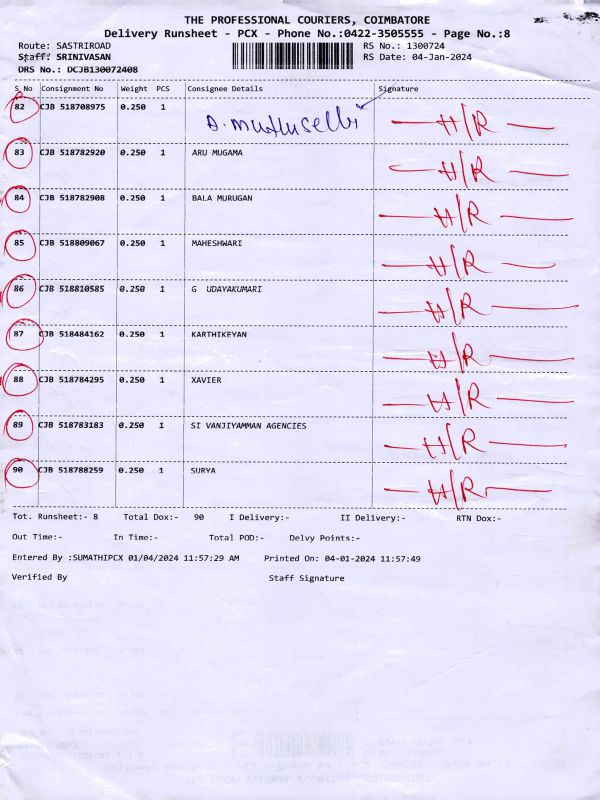 THE PROFESSIONAL COURIERS, COIMBATORE
Delivery Runsheet - PCX - Phone No.:0422-3505555 - Page No.:8
Route: SASTRIROAD RS No.: 1300724
Staff: SRINIVASAN RS Date: 04-Jan-2024
DRS No.: DCJB130072408
S No Consignment No Weight PCS Consignee Details Signature
82 CJB 518708975 0.250 1 H/R
83 CJB 518782920 0.250 1 ARU MUGAMA H/R
84 CJB 518782908 0.250 1 BALA MURUGAN H/R
85 CJB 518809067 0.250 1 MAHESHWARI H/R
86 CJB 518810585 0.250 1 G UDAYAKUMARI H/R
87 CJB 518484162 0.250 1 KARTHIKEYAN H/R
88 CJB 518784295 0.250 1 XAVIER H/R
89 CJB 518783183 0.250 1 SI VANJIYAMMAN AGENCIES H/R
90 CJB 518788259 0.250 1 SURYA H/R
Tot. Runsheet:- 8 Total Dox:- 90 I Delivery:- II Delivery:- RTN Dox:-
Out Time:- In Time:- Total POD:- Delvy Points:-
Entered By :SUMATHIPCX 01/04/2024 11:57:29 AM Printed On: 04-01-2024 11:57:49
Verified By Staff Signature